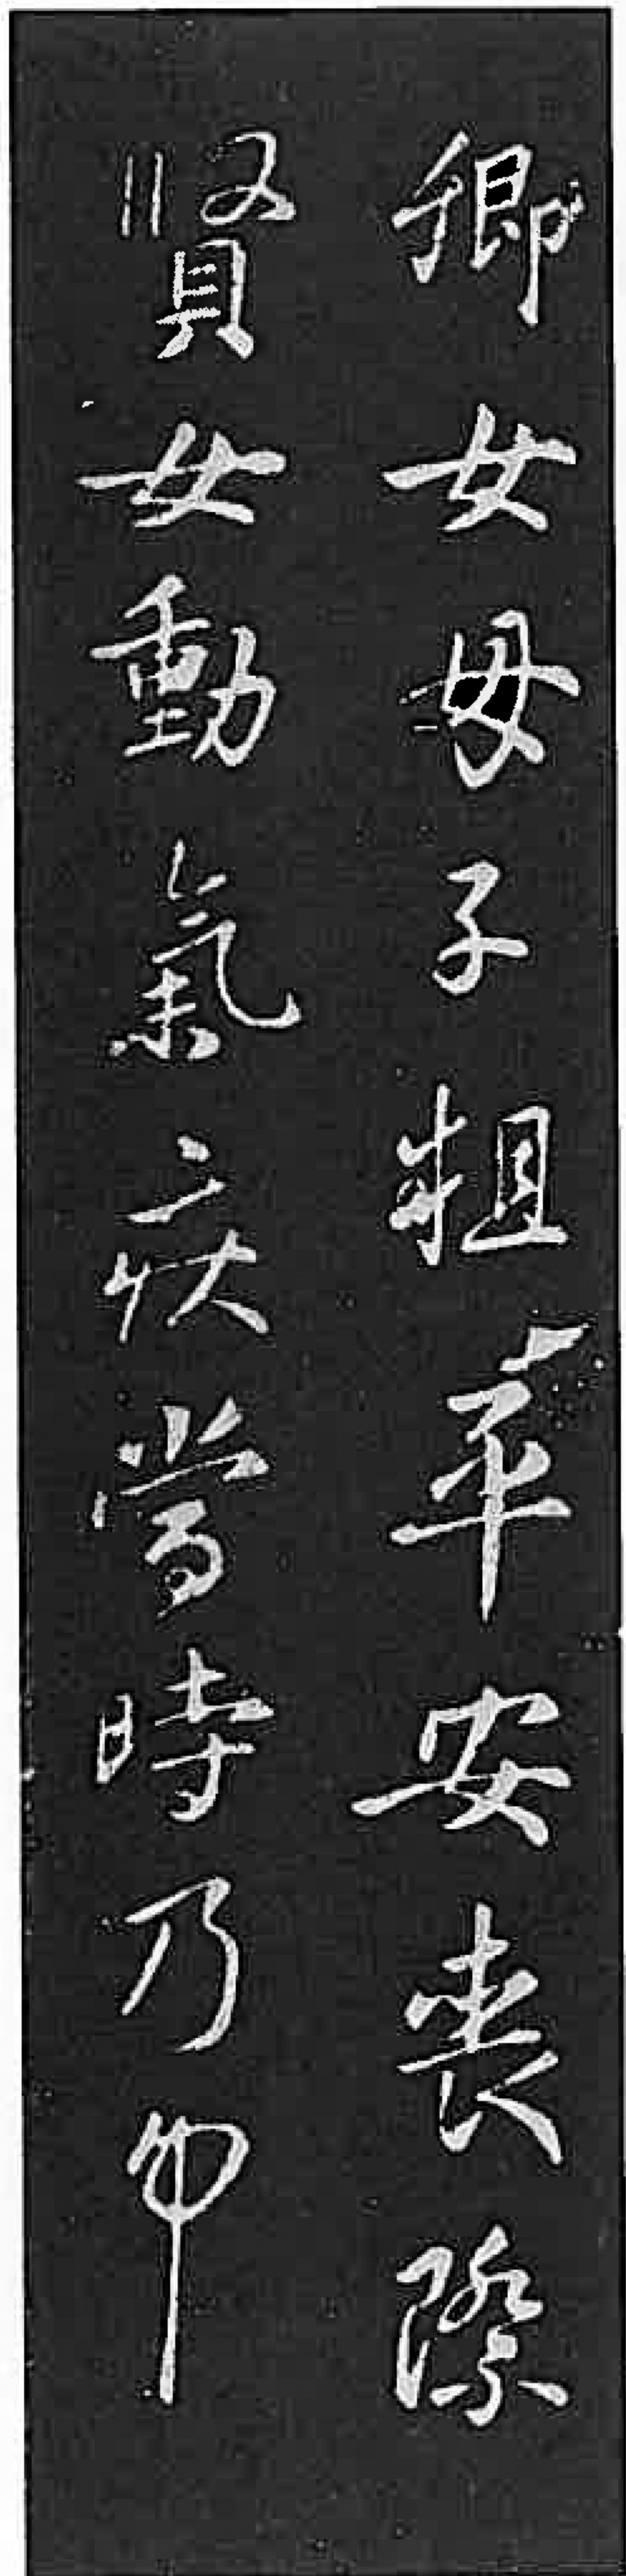 卿女母子粗平安喪際
賢女動氣疾當時乃甲